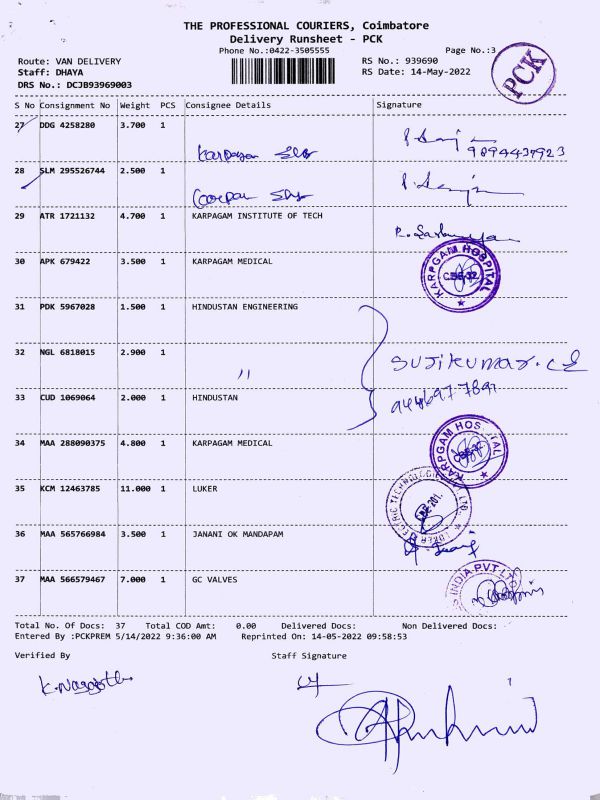 THE PROFESSIONAL COURIERS, Coimbatore
Delivery Runsheet - PCK
Phone No.:0422-3505555
Page No.:3
Route: VAN DELIVERY
RS No.: 939690
Staff: DHAYA
RS Date: 14-May-2022
DRS No.: DCJB93969003
PCK
S No Consignment No Weight PCS Consignee Details Signature
27 DDG 4258280 3.700 1
Karpagam
9894437923
28 SLM 295526744 2.500 1
29 ATR 1721132 4.700 1 KARPAGAM INSTITUTE OF TECH
30 APK 679422 3.500 1 KARPAGAM MEDICAL
KARPGAM HOSPITAL
31 PDK 5967028 1.500 1 HINDUSTAN ENGINEERING
32 NGL 6818015 2.900 1
"
Sujikumar.
33 CUD 1069064 2.000 1 HINDUSTAN
34 MAA 288090375 4.800 1 KARPAGAM MEDICAL
KARPGAM HOSPITAL
35 KCM 12463785 11.000 1 LUKER
36 MAA 565766984 3.500 1 JANANI OK MANDAPAM
37 MAA 566579467 7.000 1 GC VALVES
INDIA PVT LTD
Total No. Of Docs: 37 Total COD Amt: 0.00 Delivered Docs: Non Delivered Docs:
Entered By :PCKPREM 5/14/2022 9:36:00 AM Reprinted On: 14-05-2022 09:58:53
Verified By Staff Signature